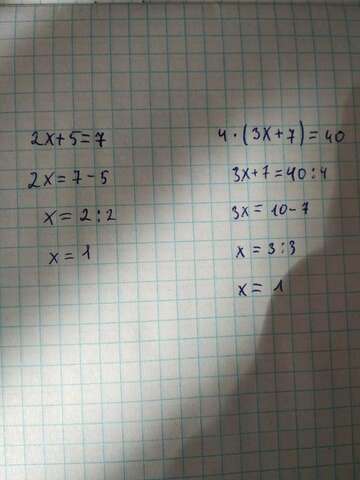 2x+5=7
2x=7-5
x=2:2
x=1
4·(3x+7)=40
3x+7=40:4
3x=10-7
x=3:3
x=1